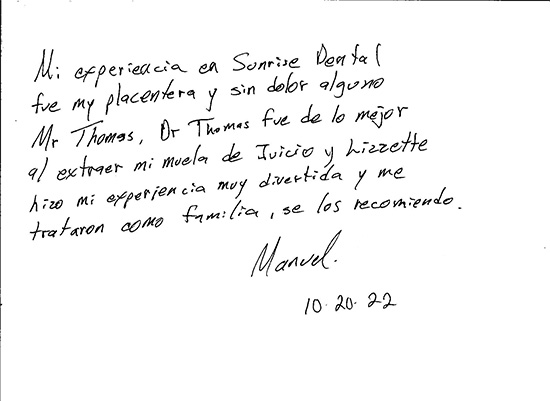 Mi experiencia en Sunrise Dental
fue my placentera y sin dolor alguno
Mr Thomas, Dr Thomas fue de lo mejor
al extraer mi muela de Juicio y Lizzette
hizo mi experiencia muy divertida y me
trataron como familia, se los recomiendo.
Manuel.
10.20.22